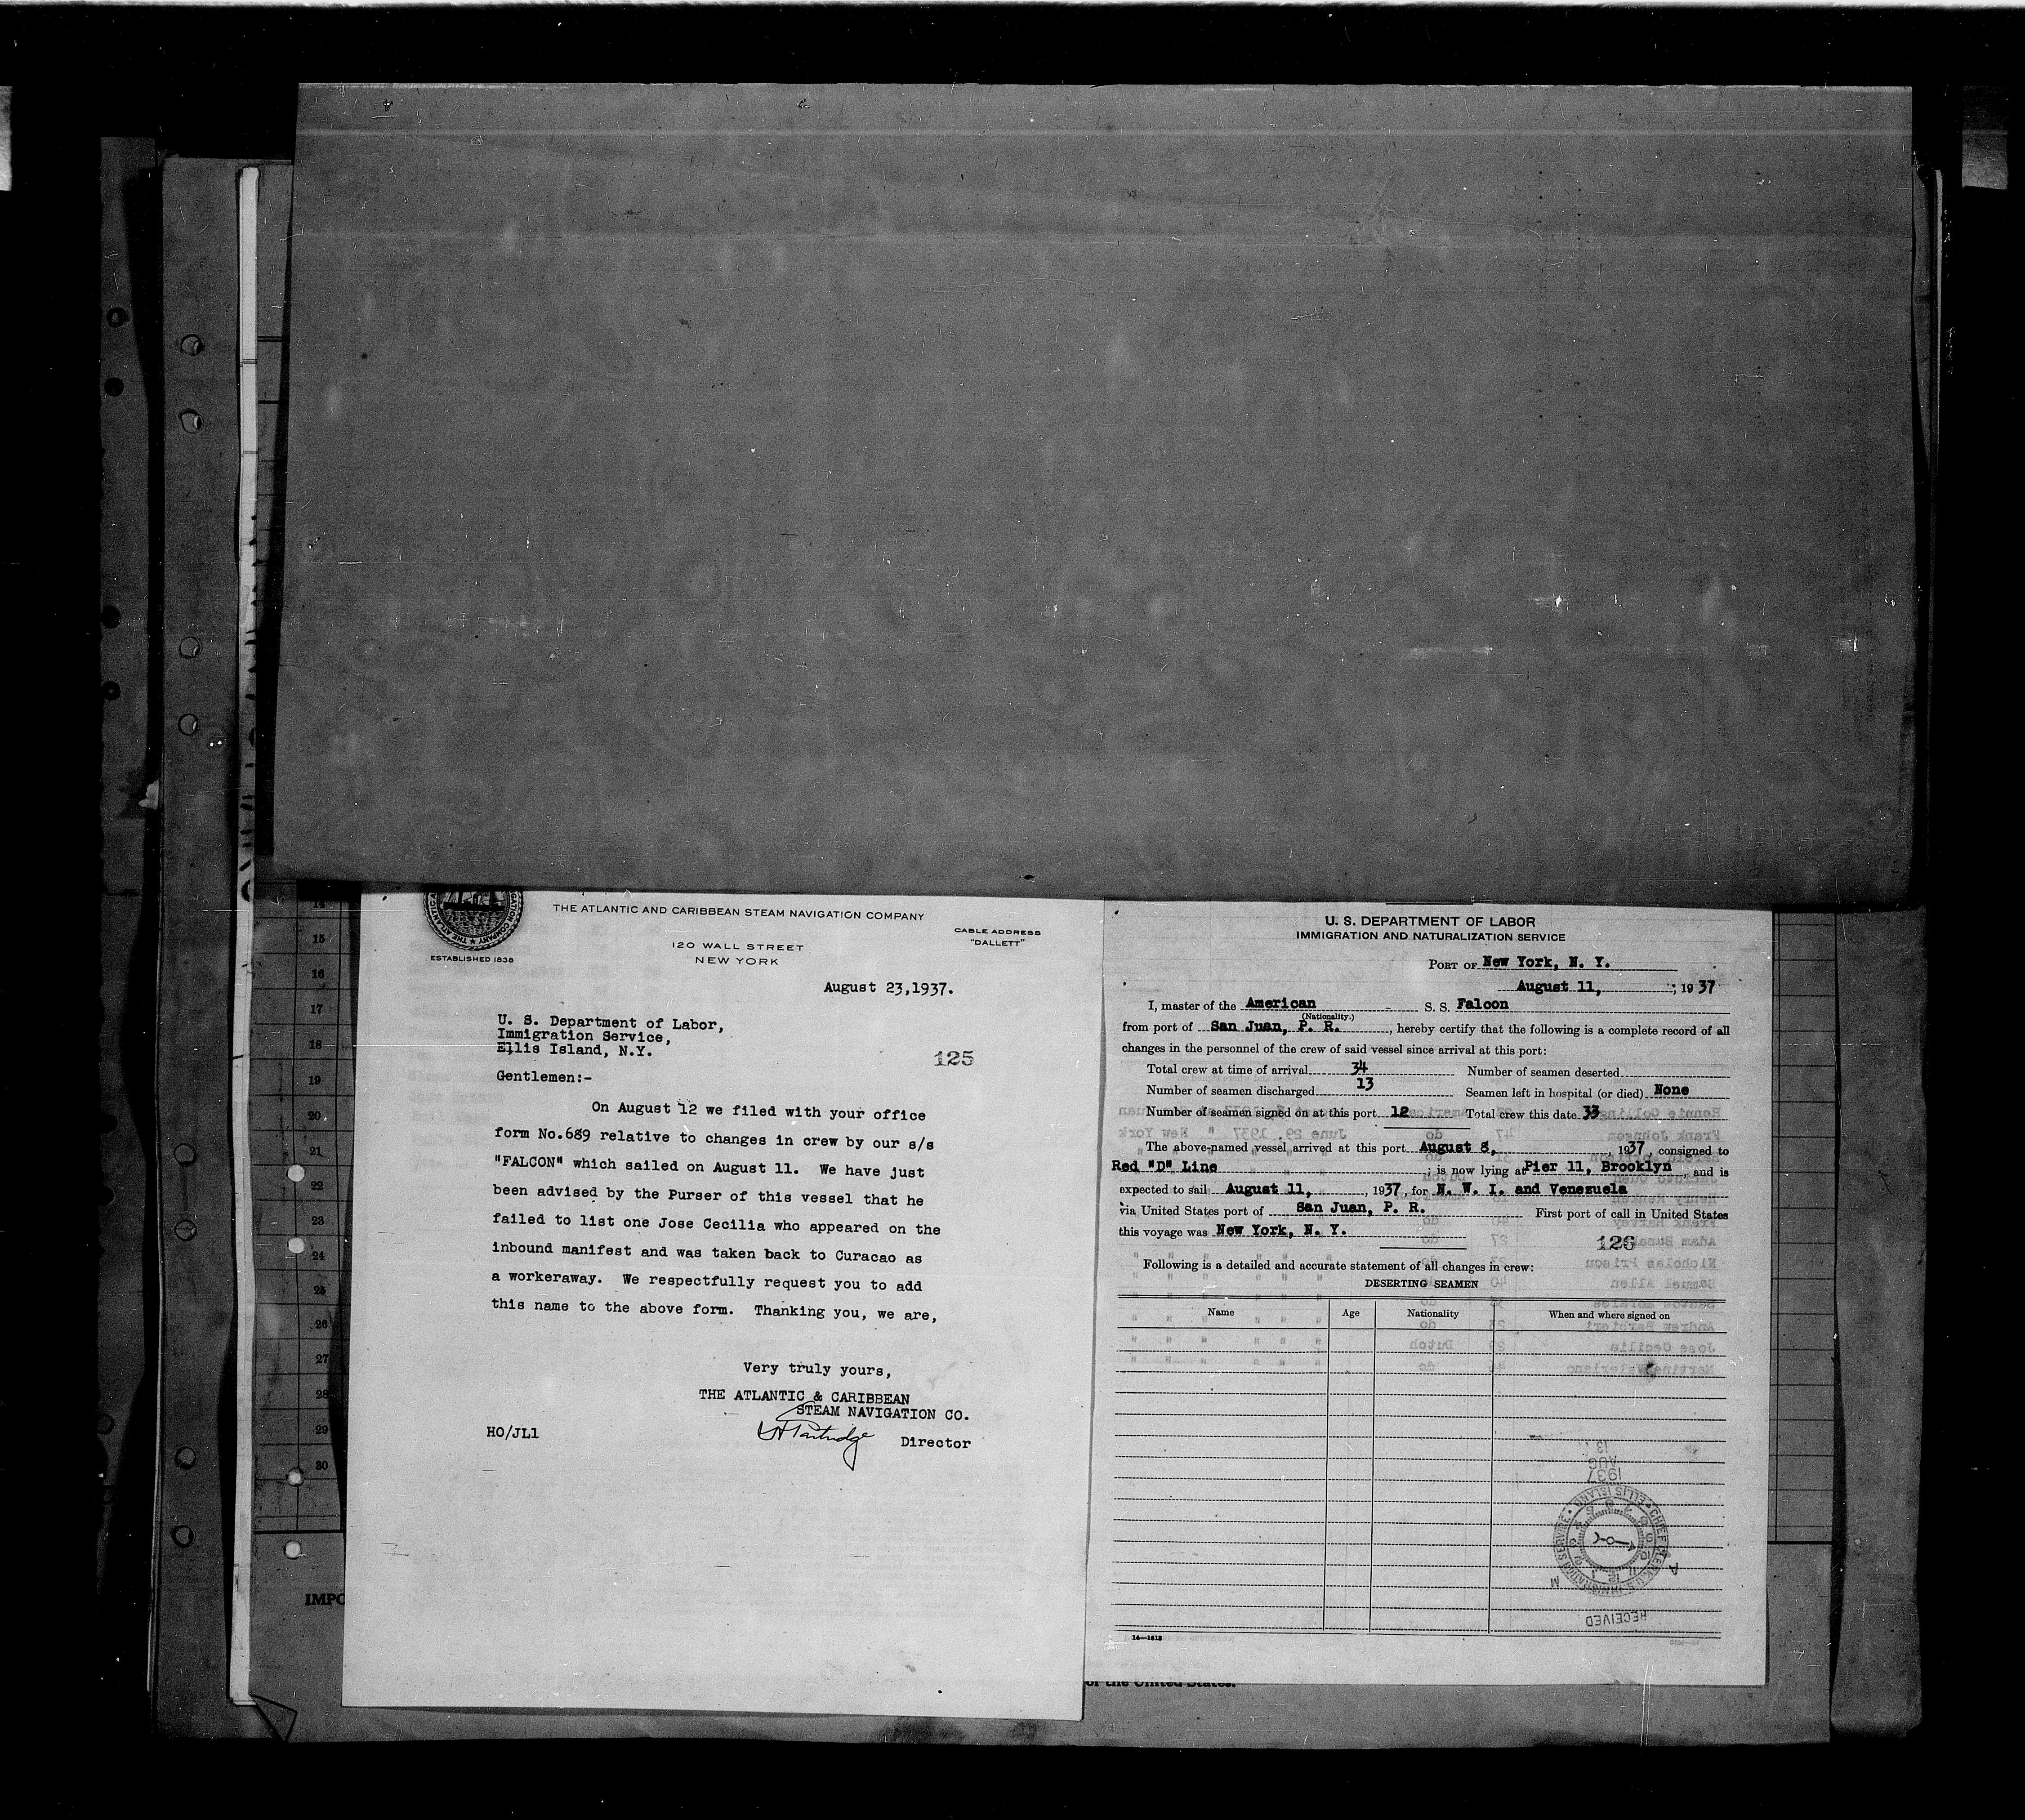 THE ATLANTIC AND CARIBBEAN STEAM NAVIGATION COMPANY
CABLE ADDRESS
"DALLETT"
120 WALL STREET
NEW YORK
ESTABLISHED 1838
August 23,1937.
U. S. Department of Labor,
Immigration Service,
Ellis Island, N.Y.
125
Gentlemen:-
On August 12 we filed with your office
form No.689 relative to changes in crew by our s/s
"FALCON" which sailed on August 11. We have just
been advised by the Purser of this vessel that he
failed to list one Jose Cecilia who appeared on the
inbound manifest and was taken back to Curacao as
a workeraway. We respectfully request you to add
this name to the above form. Thanking you, we are,
Very truly yours,
THE ATLANTIC & CARIBBEAN
STEAM NAVIGATION CO.
HO/JL1
Director
U. S. DEPARTMENT OF LABOR
IMMIGRATION AND NATURALIZATION SERVICE
PORT OF New York, N. Y.
August 11, ; 1937
I, master of the American S. S. Falcon
(Nationality.)
from port of San Juan, P. R. , hereby certify that the following is a complete record of all
changes in the personnel of the crew of said vessel since arrival at this port:
Total crew at time of arrival 34 Number of seamen deserted
Number of seamen discharged 13 Seamen left in hospital (or died) None
Number of seamen signed on at this port 12 Total crew this date 33
The above-named vessel arrived at this port August 8, , 1937, consigned to
Red "D" Line ; is now lying at Pier 11, Brooklyn , and is
expected to sail August 11, , 1937, for N. W. I. and Venezuela
via United States port of San Juan, P. R. First port of call in United States
this voyage was New York, N. Y.
126
Following is a detailed and accurate statement of all changes in crew:
DESERTING SEAMEN
Name Age Nationality When and where signed on
RECEIVED
AUG
13
1937
14—1618
15
16
17
18
19
20
21
22
23
24
25
26
27
28
29
30
IMPO
of the United States.